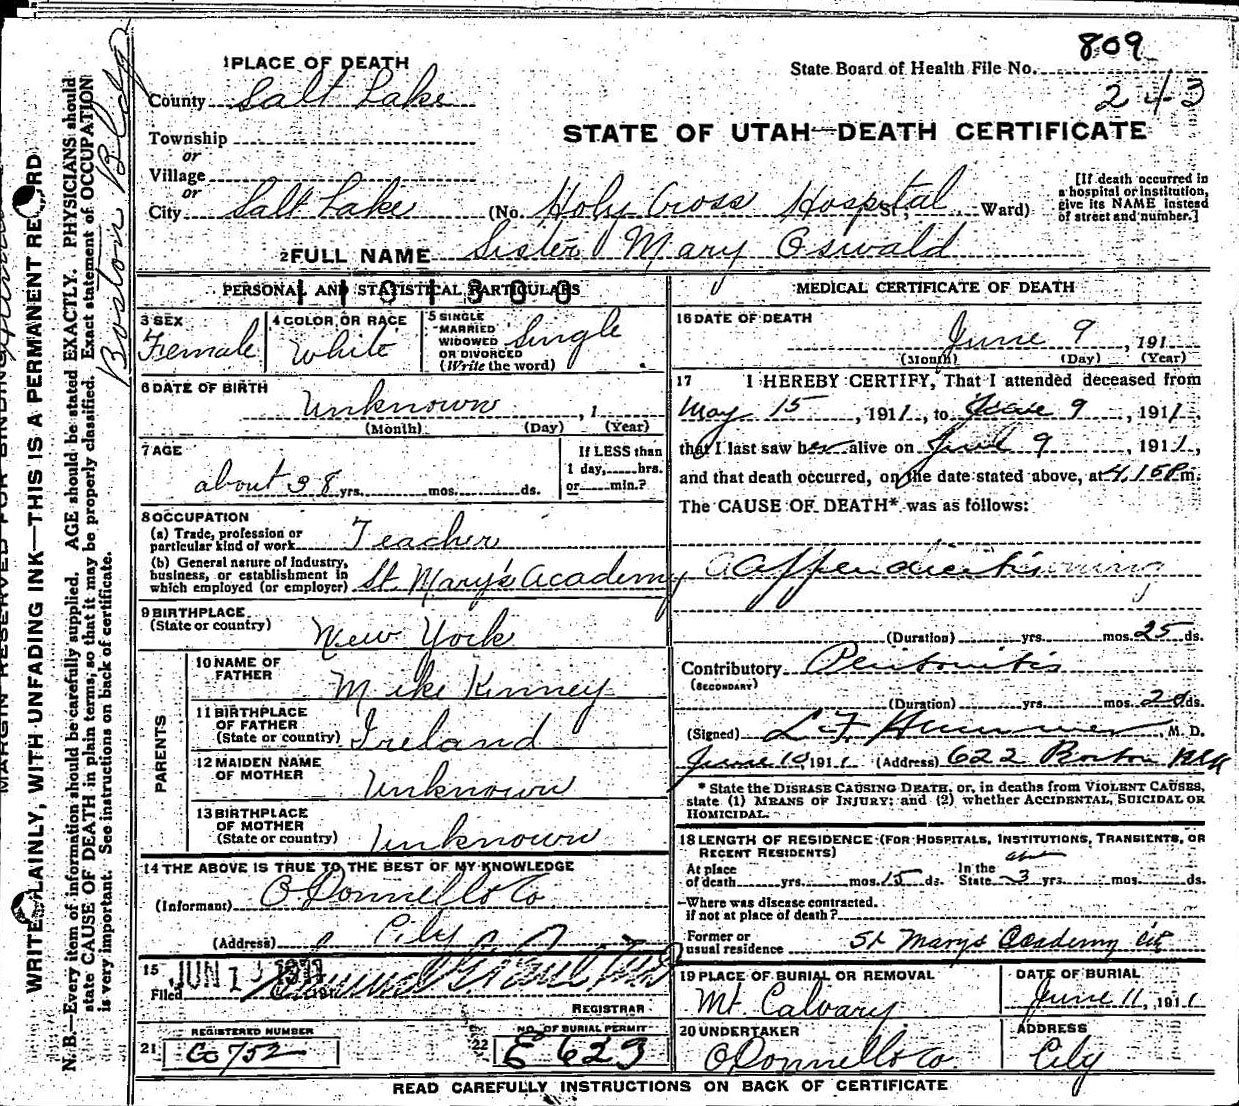 809
State Board of Health File No.
243
1 PLACE OF DEATH
County Salt Lake
STATE OF UTAH—DEATH CERTIFICATE
Township
or
Village
or
City Salt Lake (No. Holy Cross Hospital St., Ward)
[If death occurred in
a hospital or institution,
give its NAME instead
of street and number.]
2 FULL NAME Sister Mary Oswald
PERSONAL AND STATISTICAL PARTICULARS
3 SEX
Female
4 COLOR OR RACE
White
5 SINGLE
MARRIED
WIDOWED
OR DIVORCED
(Write the word)
Single
6 DATE OF BIRTH
Unknown, 1
(Month) (Day) (Year)
7 AGE
about 38 yrs. mos. ds.
If LESS than
1 day, hrs.
or min.?
8 OCCUPATION
(a) Trade, profession or
particular kind of work Teacher
(b) General nature of industry,
business, or establishment in
which employed (or employer) St. Mary's Academy
9 BIRTHPLACE
(State or country) New York
PARENTS
10 NAME OF
FATHER Mike Kinney
11 BIRTHPLACE
OF FATHER
(State or country) Ireland
12 MAIDEN NAME
OF MOTHER Unknown
13 BIRTHPLACE
OF MOTHER
(State or country) Unknown
14 THE ABOVE IS TRUE TO THE BEST OF MY KNOWLEDGE
(Informant) O'Donnell & Co
(Address) City
15
Filed JUN 1 1911
REGISTRAR
REGISTERED NUMBER
21 Co 752
NO. OF BURIAL PERMIT
22 E 623
MEDICAL CERTIFICATE OF DEATH
16 DATE OF DEATH
June 9, 191
(Month) (Day) (Year)
17 I HEREBY CERTIFY, That I attended deceased from
May 15, 1911, to June 9, 1911,
that I last saw her alive on June 9, 1911,
and that death occurred, on the date stated above, at 4.15 P m.
The CAUSE OF DEATH* was as follows:
Appendicitis
(Duration) yrs. mos. 25 ds.
Contributory Peritonitis
(SECONDARY)
(Duration) yrs. mos. 20 ds.
(Signed) L. F. Hummer, M. D.
June 10, 1911 (Address) 622 Boston Blk
* State the DISEASE CAUSING DEATH, or, in deaths from VIOLENT CAUSES,
state (1) MEANS OF INJURY; and (2) whether ACCIDENTAL, SUICIDAL OR
HOMICIDAL.
18 LENGTH OF RESIDENCE (FOR HOSPITALS, INSTITUTIONS, TRANSIENTS, OR
RECENT RESIDENTS)
At place
of death yrs. mos. 15 ds. In the
State 3 yrs. mos. ds.
Where was disease contracted.
if not at place of death?
Former or
usual residence St Marys Academy City
19 PLACE OF BURIAL OR REMOVAL
Mt. Calvary
DATE OF BURIAL
June 11, 1911
20 UNDERTAKER
O'Donnell & Co.
ADDRESS
City
READ CAREFULLY INSTRUCTIONS ON BACK OF CERTIFICATE
MARGIN RESERVED FOR BINDING
WRITE PLAINLY, WITH UNFADING INK—THIS IS A PERMANENT RECORD
N. B.—Every item of information should be carefully supplied. AGE should be stated EXACTLY. PHYSICIANS should
state CAUSE OF DEATH in plain terms, so that it may be properly classified. Exact statement of OCCUPATION
is very important. See instructions on back of certificate.
Boston Bldg